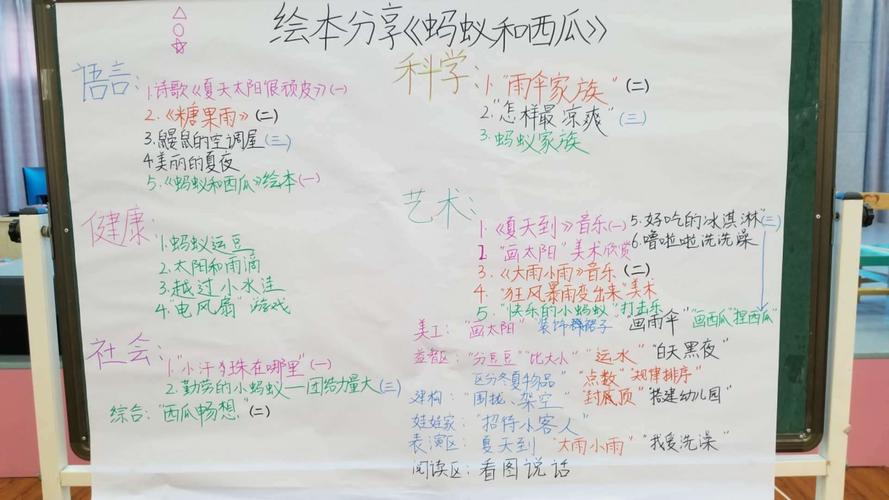 绘本分享《蚂蚁和西瓜》
语言：
1.诗歌《夏天太阳很顽皮》(一)
2.《糖果雨》(二)
3.鼹鼠的空调屋(三)
4.美丽的夏夜
5.《蚂蚁和西瓜》绘本(一)
健康：
1.蚂蚁运豆
2.太阳和雨滴
3.越过小水洼
4."电风扇"游戏
社会：
1."小汗珠在哪里"(一)
2.勤劳的小蚂蚁—团结力量大(三)
综合："西瓜畅想"(二)
科学：
1."雨伞家族"(二)
2."怎样最凉爽"(三)
3.蚂蚁家族
艺术：
1.《夏天到》音乐(一)
2."画太阳"美术欣赏
3.《大雨小雨》音乐(二)
4."狂风暴雨变出来"美术
5."快乐的小蚂蚁"打击乐
5.好吃的冰淇淋(三)
6.噜啦啦洗洗澡
美工："画太阳" 装饰裙子 画雨伞 "画西瓜""捏西瓜"
益智区："分豆豆""比大小" "运水" "白天黑夜"
区分冬夏物品" "点数""规律排序"
建构："围拢、架空" "封底顶" "搭建幼儿园"
娃娃家："招待小客人"
表演区：夏天到 "大雨小雨" "我爱洗澡"
阅读区：看图说话